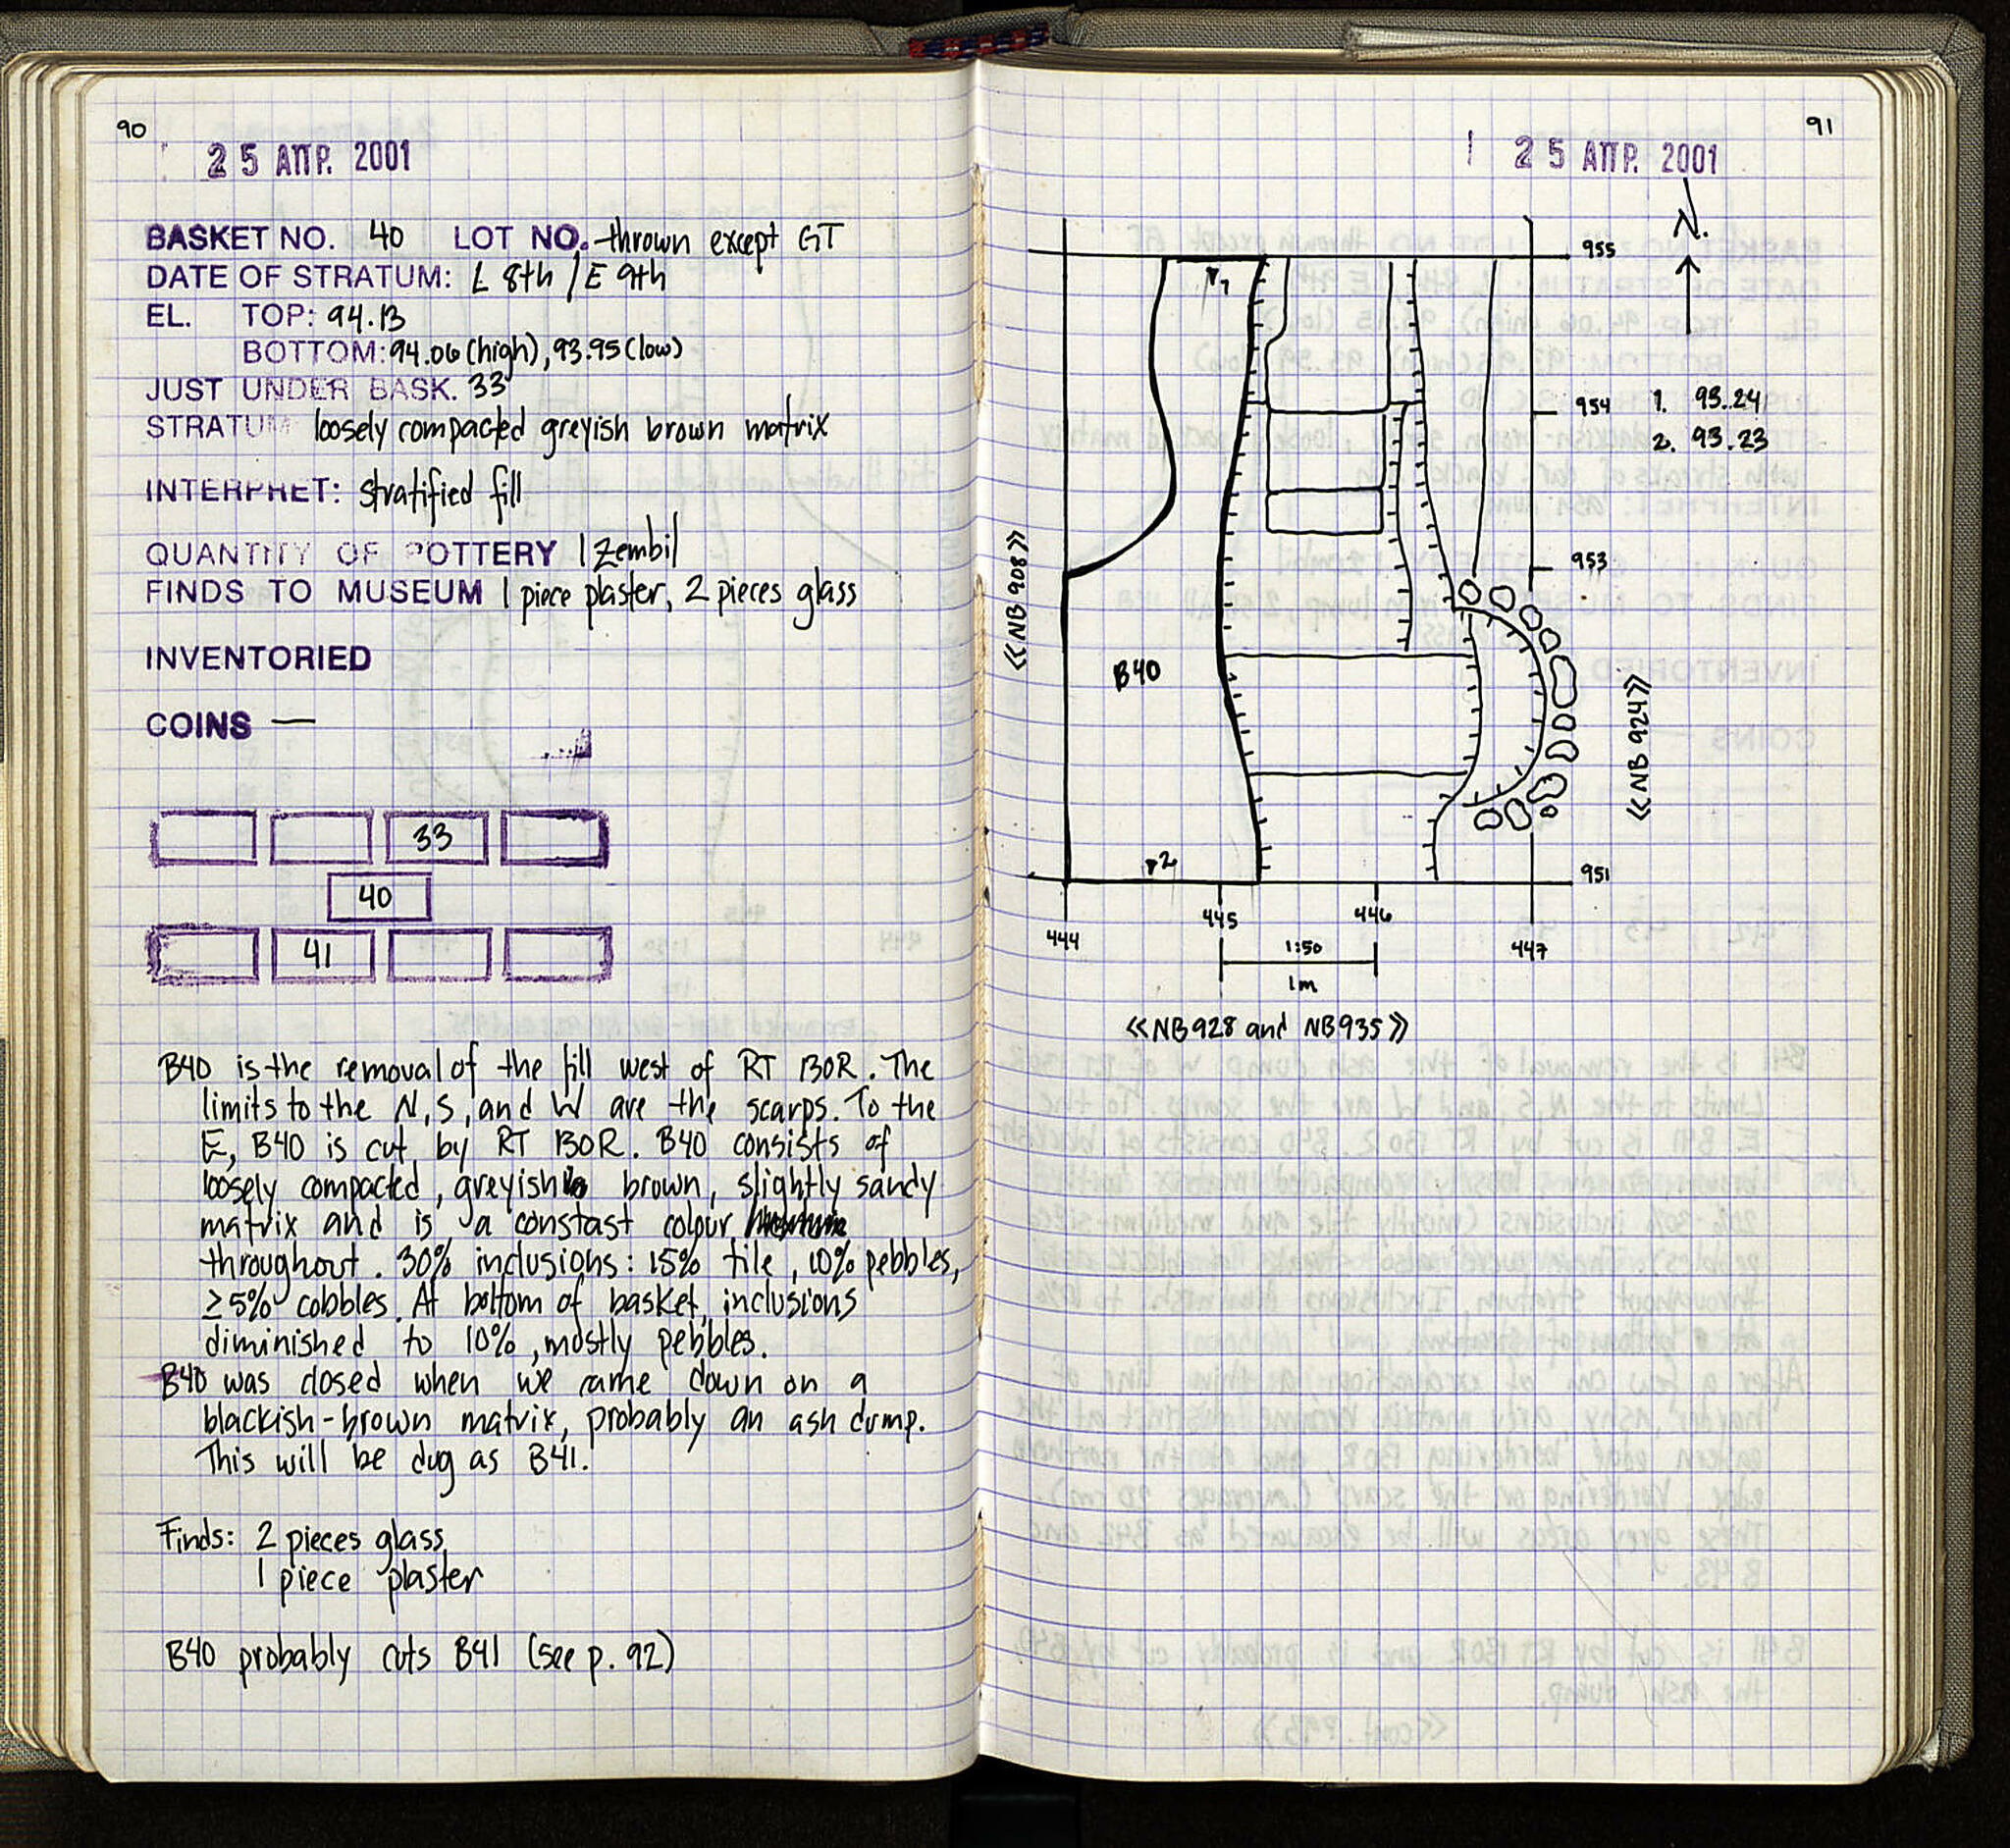 90
25 ΑΠΡ. 2001
BASKET NO. 40 LOT NO. thrown except GT
DATE OF STRATUM: L 8th / E 9th
EL. TOP: 94.13
BOTTOM: 94.06 (high), 93.95 (low)
JUST UNDER BASK. 33
STRATUM loosely compacted greyish brown matrix
INTERPRET: stratified fill
QUANTITY OF POTTERY 1 zembil
FINDS TO MUSEUM 1 piece plaster, 2 pieces glass
INVENTORIED
COINS —
33
40
41
B40 is the removal of the fill west of RT 130R. The
limits to the N, S, and W are the scarps. To the
E, B40 is cut by RT 130R. B40 consists of
loosely compacted, greyish brown, slightly sandy
matrix and is a constast colour
throughout. 30% inclusions: 15% tile, 10% pebbles,
≥5% cobbles. At bottom of basket, inclusions
diminished to 10%, mostly pebbles.
B40 was closed when we came down on a
blackish-brown matrix, probably an ash dump.
This will be dug as B41.
Finds: 2 pieces glass
1 piece plaster
B40 probably cuts B41 (see p. 92)
91
25 ΑΠΡ. 2001
N.
955
1
954
1. 93.24
2. 93.23
953
«NB 908»
B40
«NB 924»
2
951
445
446
444
1:50
447
1m
«NB928 and NB935»